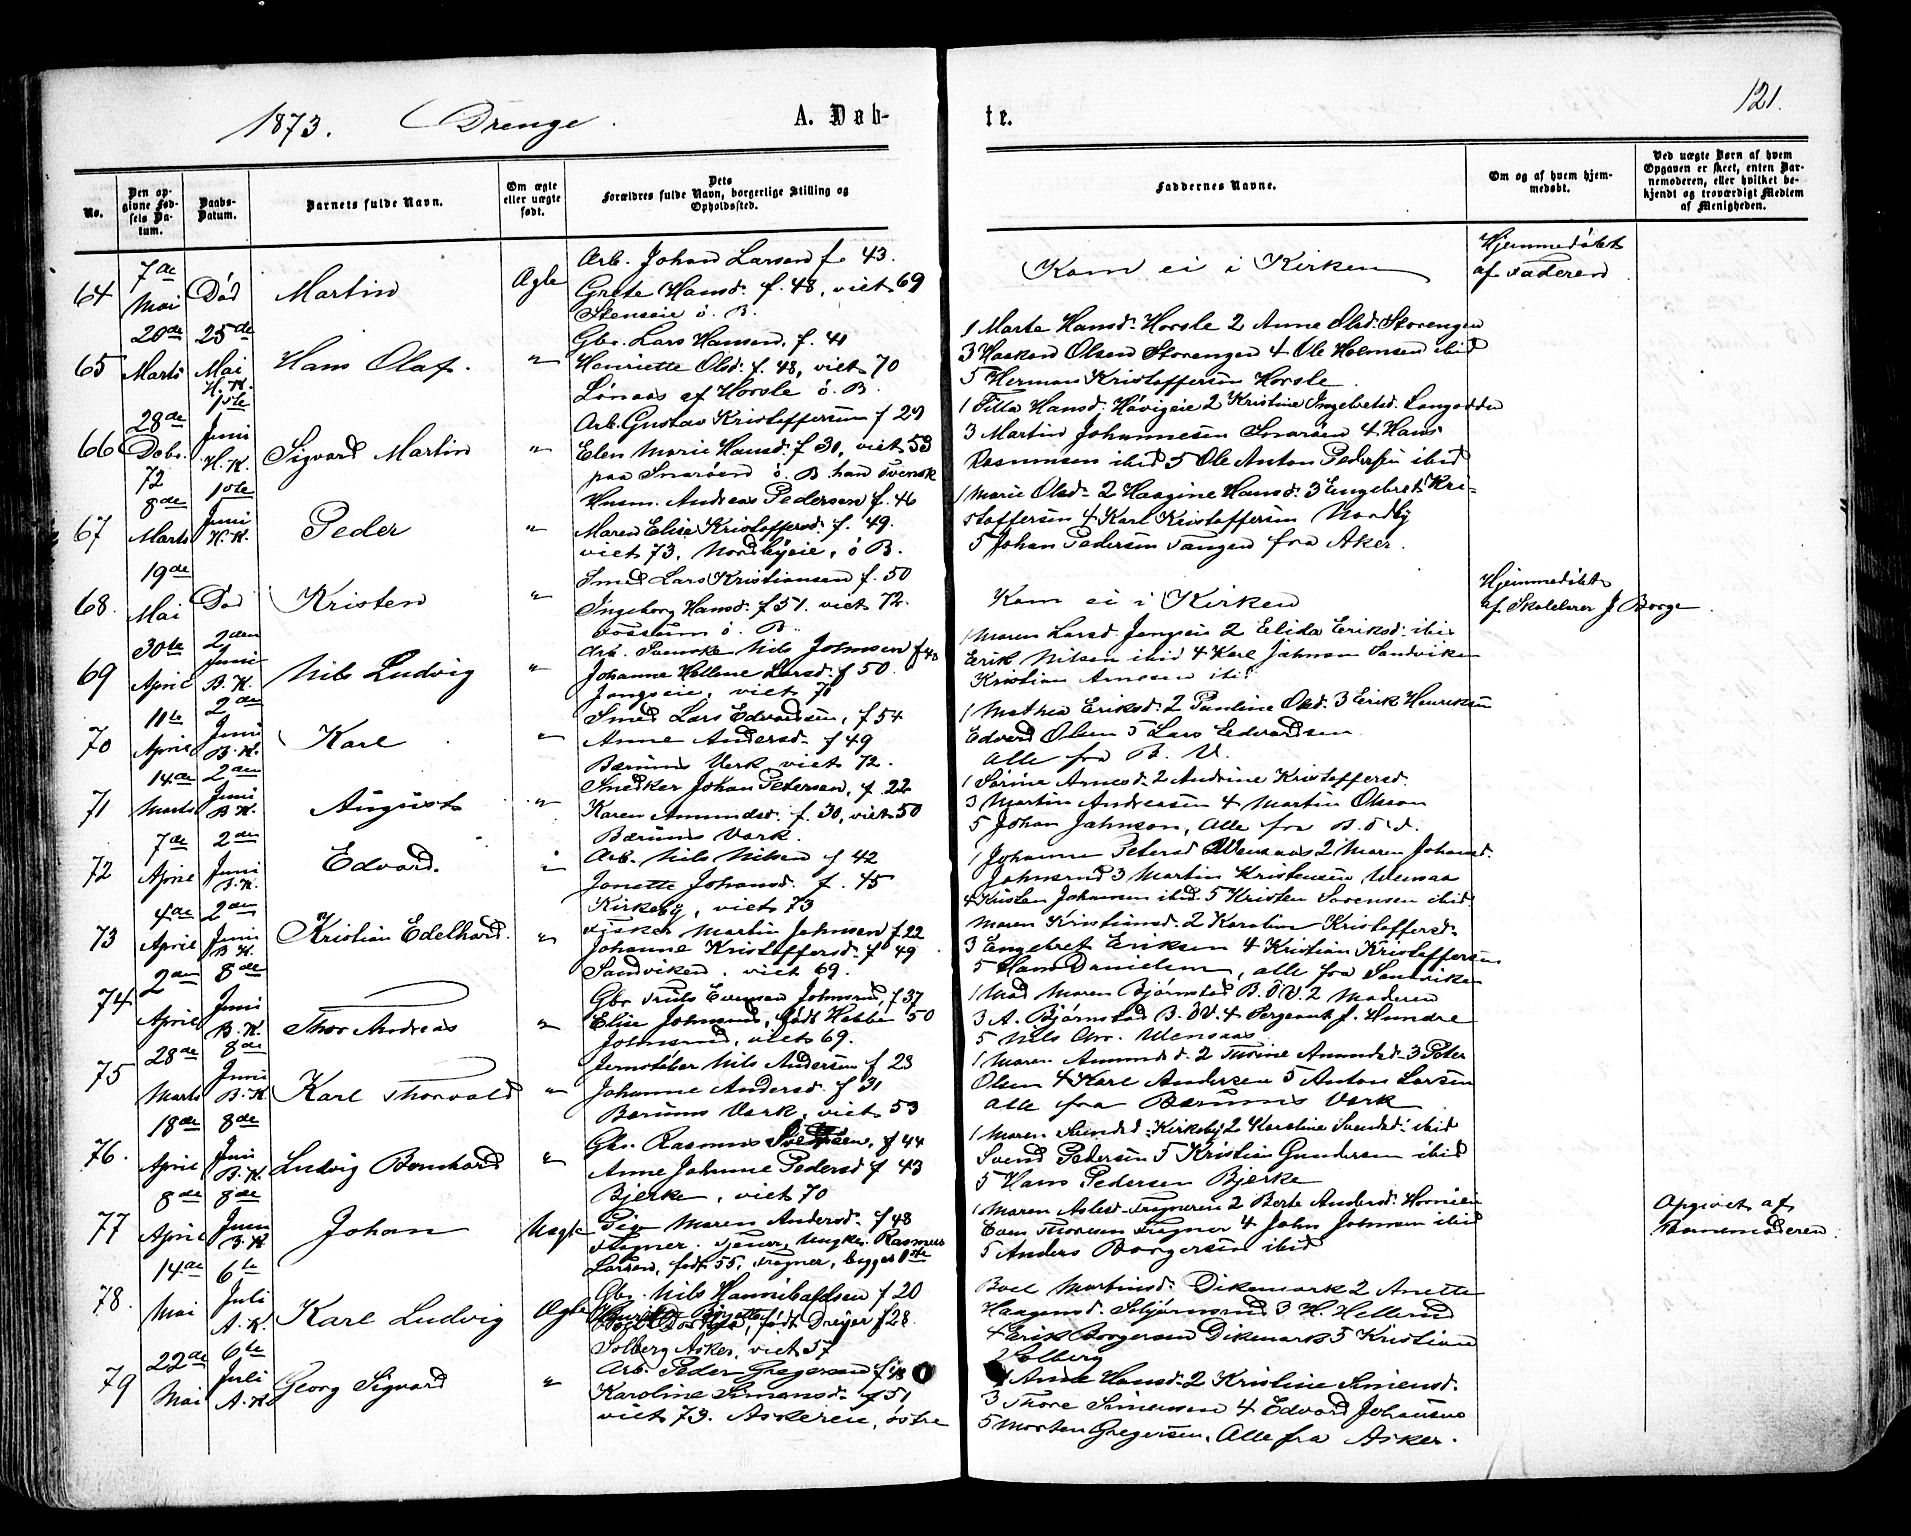 1873. Drenge. A. Døb-
te. 121.
No.
Den op-
givne Fød-
sels Da-
tum.
Daabs-
Datum.
Barnets fulde Navn.
Om ægte
eller uægte
født.
Dets
Forældres fulde Navn, borgerlige Stilling og
Opholdssted.
Faddernes Navne.
Om og af hvem hjem-
medøbt.
Ved uægte Børn af hvem
Opgaven er skeet, enten Bar-
nemoderen, eller hvilket be-
kjendt og troværdigt Medlem
af Menigheden.
64 7de Mai Død Martin Ægte
Arb. Johan Larsen f. 43.
Grete Hansd. f. 48, viet 69
Stenseie ö. B.
Kom ei i Kirken
Hjemmedøbt
af Faderen
65 20de Marts 25de Mai H.K. Hans Olaf. "
Gbr. Lars Hansen, f. 41
Henriette Olsd. f. 48, viet 70
Lønaas af Horsle ö. B.
1 Marte Hansd. Horsle 2 Anne Olsd. Storengen
3 Haaken Olsen Storengen 4 Ole Holmsen ibid
5 Herman Kristoffersen Horsle.
66 28de Debr. 72 1ste Juni H.K. Sigvard Martin "
Arb. Gustav Kristoffersen f 29
Elen Marie Hansd. f 30, viet 53
paa Snarøen ö. B. han svensk
1 Titta Hansd. Høvigeie 2 Kristine Ingebretsd. Langodden
3 Martin Johannesen Snarøen 4 Hans
Rasmussen ibid 5 Ole Anton Pedersen ibid
67 8de Marts 1ste Juni H.K. Peder "
Husm. Andreas Pedersen f. 46
Maren Elise Kristoffersd. f. 49.
viet 73, Nordbyeie, ö B.
1 Marie Olsd. 2 Haagine Hansd. 3 Engebret Kri-
stoffersen 4 Karl Kristoffersen Nordby
5 Johan Pedersen Tangen fra Aker.
68. 19de Mai Død Kristen "
Smed Lars Kristiansen f. 50
Ingeborg Hansd. f 51. viet 72.
Fossum ö. B.
Kom ei i Kirken
Hjemmedøbt
af Skolelærer J Borge
69 30te April 2den Juni B.K. Nils Ludvig "
Arb. Svenske Nils Johnsen f 40
Johanne Hellene Larsd. f 50.
Jongseie, viet 71
1 Maren Larsd. Jongseie 2 Elida Eriksd. ibid
Erik Nilsen ibid 4 Karl Johnsen Sandviken
Kristian Arnesen ibid
70 11te April 2den Juni B.K. Karl "
Smed Lars Edvardsen, f 54
Anne Andersd. f 49
Bærums Verk, viet 72.
1 Mathea Eriksd. 2 Pauline Olsd. 3 Erik Henriksen
Edvard Olsen 5 Lars Edvardsen
Alle fra B. V.
71 14de Marts 2den Juni B.K. August "
Snedker Johan Petersen, f 22
Karen Amundsd. f. 30, viet 50
Bærums Værk.
1 Sørine Arnesd. 2 Andrine Kristoffersd.
3 Martin Andreasen 4 Martin Olsson
5 Johan Johnson, Alle fra B.
72 7de April 2den Juni B.K. Edvard. "
Arb. Nils Nilsen f 42
Jonette Johansd. f. 45
Kirkeby, viet 73
1 Johanne Petersd 2 Maren Johansd.
Johnsrud 3 Martin Kristensen
4 Kristen Johansen ibid 5 Kristen Sørensen ibid
73 4de April 2den Juni B.K. Kristian Edelhard. "
Fisker Martin Johnsen f 22
Johanne Kristoffersd. f 49
Sandviken, viet 69.
Maren Kristiansd. 2 Karoline Kristoffersd.
3 Engebret Eriksen 4 Kristian Kristoffersen
5 Hans Danielsen, alle fra Sandviken
74 2den April 8de Juni B.K. Thor Andreas "
Gbr Truls Evensen Johnsrud, f 37
Elise Johnsrud, født Hebbe 50
Johnsrud, viet 69.
1 Mad Maren Bjørnstad B. Ö V. 2 Moderen
3 A. Bjørnstad B. Ö V. 4 Sergeant J. Hundre
5 Nils
75 28de Marts 8de Juni B.K. Karl Thorvald "
Jernstøber Nils Andersen f 23
Johanne Andersd. f 31
Bærums Verk, viet 53
1 Maren Amundsd. 2 Thrine Amundsd. 3 Peter
Olsen 4 Karl Andersen 5 Anton Larsen
alle fra Bærums Verk
76. 18de April 8de Juni B.K. Ludvig Bernhard "
Gbr. Rasmus Svendsen, f 44
Anne Johanne Pedersd f 43
Bjerke, viet 70
1 Maren Svendsd. Kirkeby 2 Karoline Svendsd. ibid
Svend Pedersen 5 Kristian Gundersen ibid
5 Hans Pedersen Bjerke
77 8de April 8de Juni B.K Johan Uægte
Pige Maren Andersd. f 48
Tragner. Tjener, Ungkar Rasmus
Larsen, født 55, Tragner, begges 1ste
1 Maren Aslesd. 2 Berte Andersd.
Even Thoresen Tragner 4 John Johnsen ibid
5 Anders Borgersen ibid
Opgivet af
Barnemoderen.
78. 14de Mai 6te Juli A.K. Karl Ludvig Ægte
Gbr. Nils Hannibalsen f 20
født Dreyer f 28.
Solberg Asker, viet 57
Boel Martinsd. Dikemark 2 Anette
Haagensd. 3 H. Hellerud
4 Erik Borgersen Dikemark 5 Kristian
Solberg
79 22de Mai 6te Juli A.K Georg Sigvard "
Arb. Peder Gregersen f 48
Karoline Simensd. f 51
viet 73. Askereie, östre
1 Anne Hansd. 2 Kristine Simensd.
3 Thore Simensen 4 Edvard Johansen
5 Morten Gregersen. Alle fra Asker.